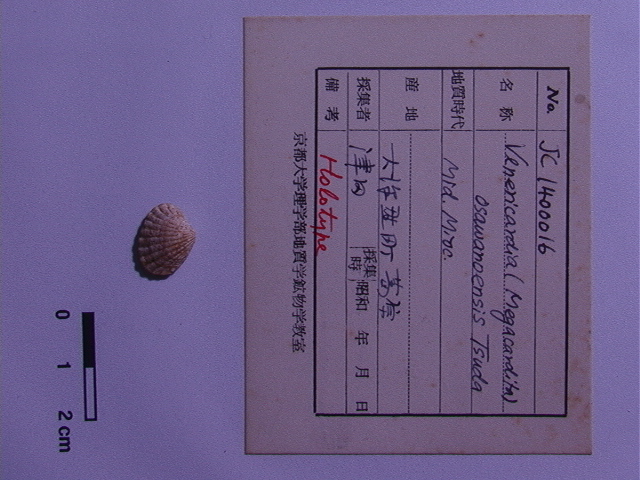 No. JC 1400016
名称 Venericardia (Megacardita)
osawanoensis Tsuda
地質時代 Mid. Mioc.
産地
採集者 津田 採集時 昭和 年 月 日
備考 Holotype
京都大学理学部地質学鉱物学教室
0 1 2 cm